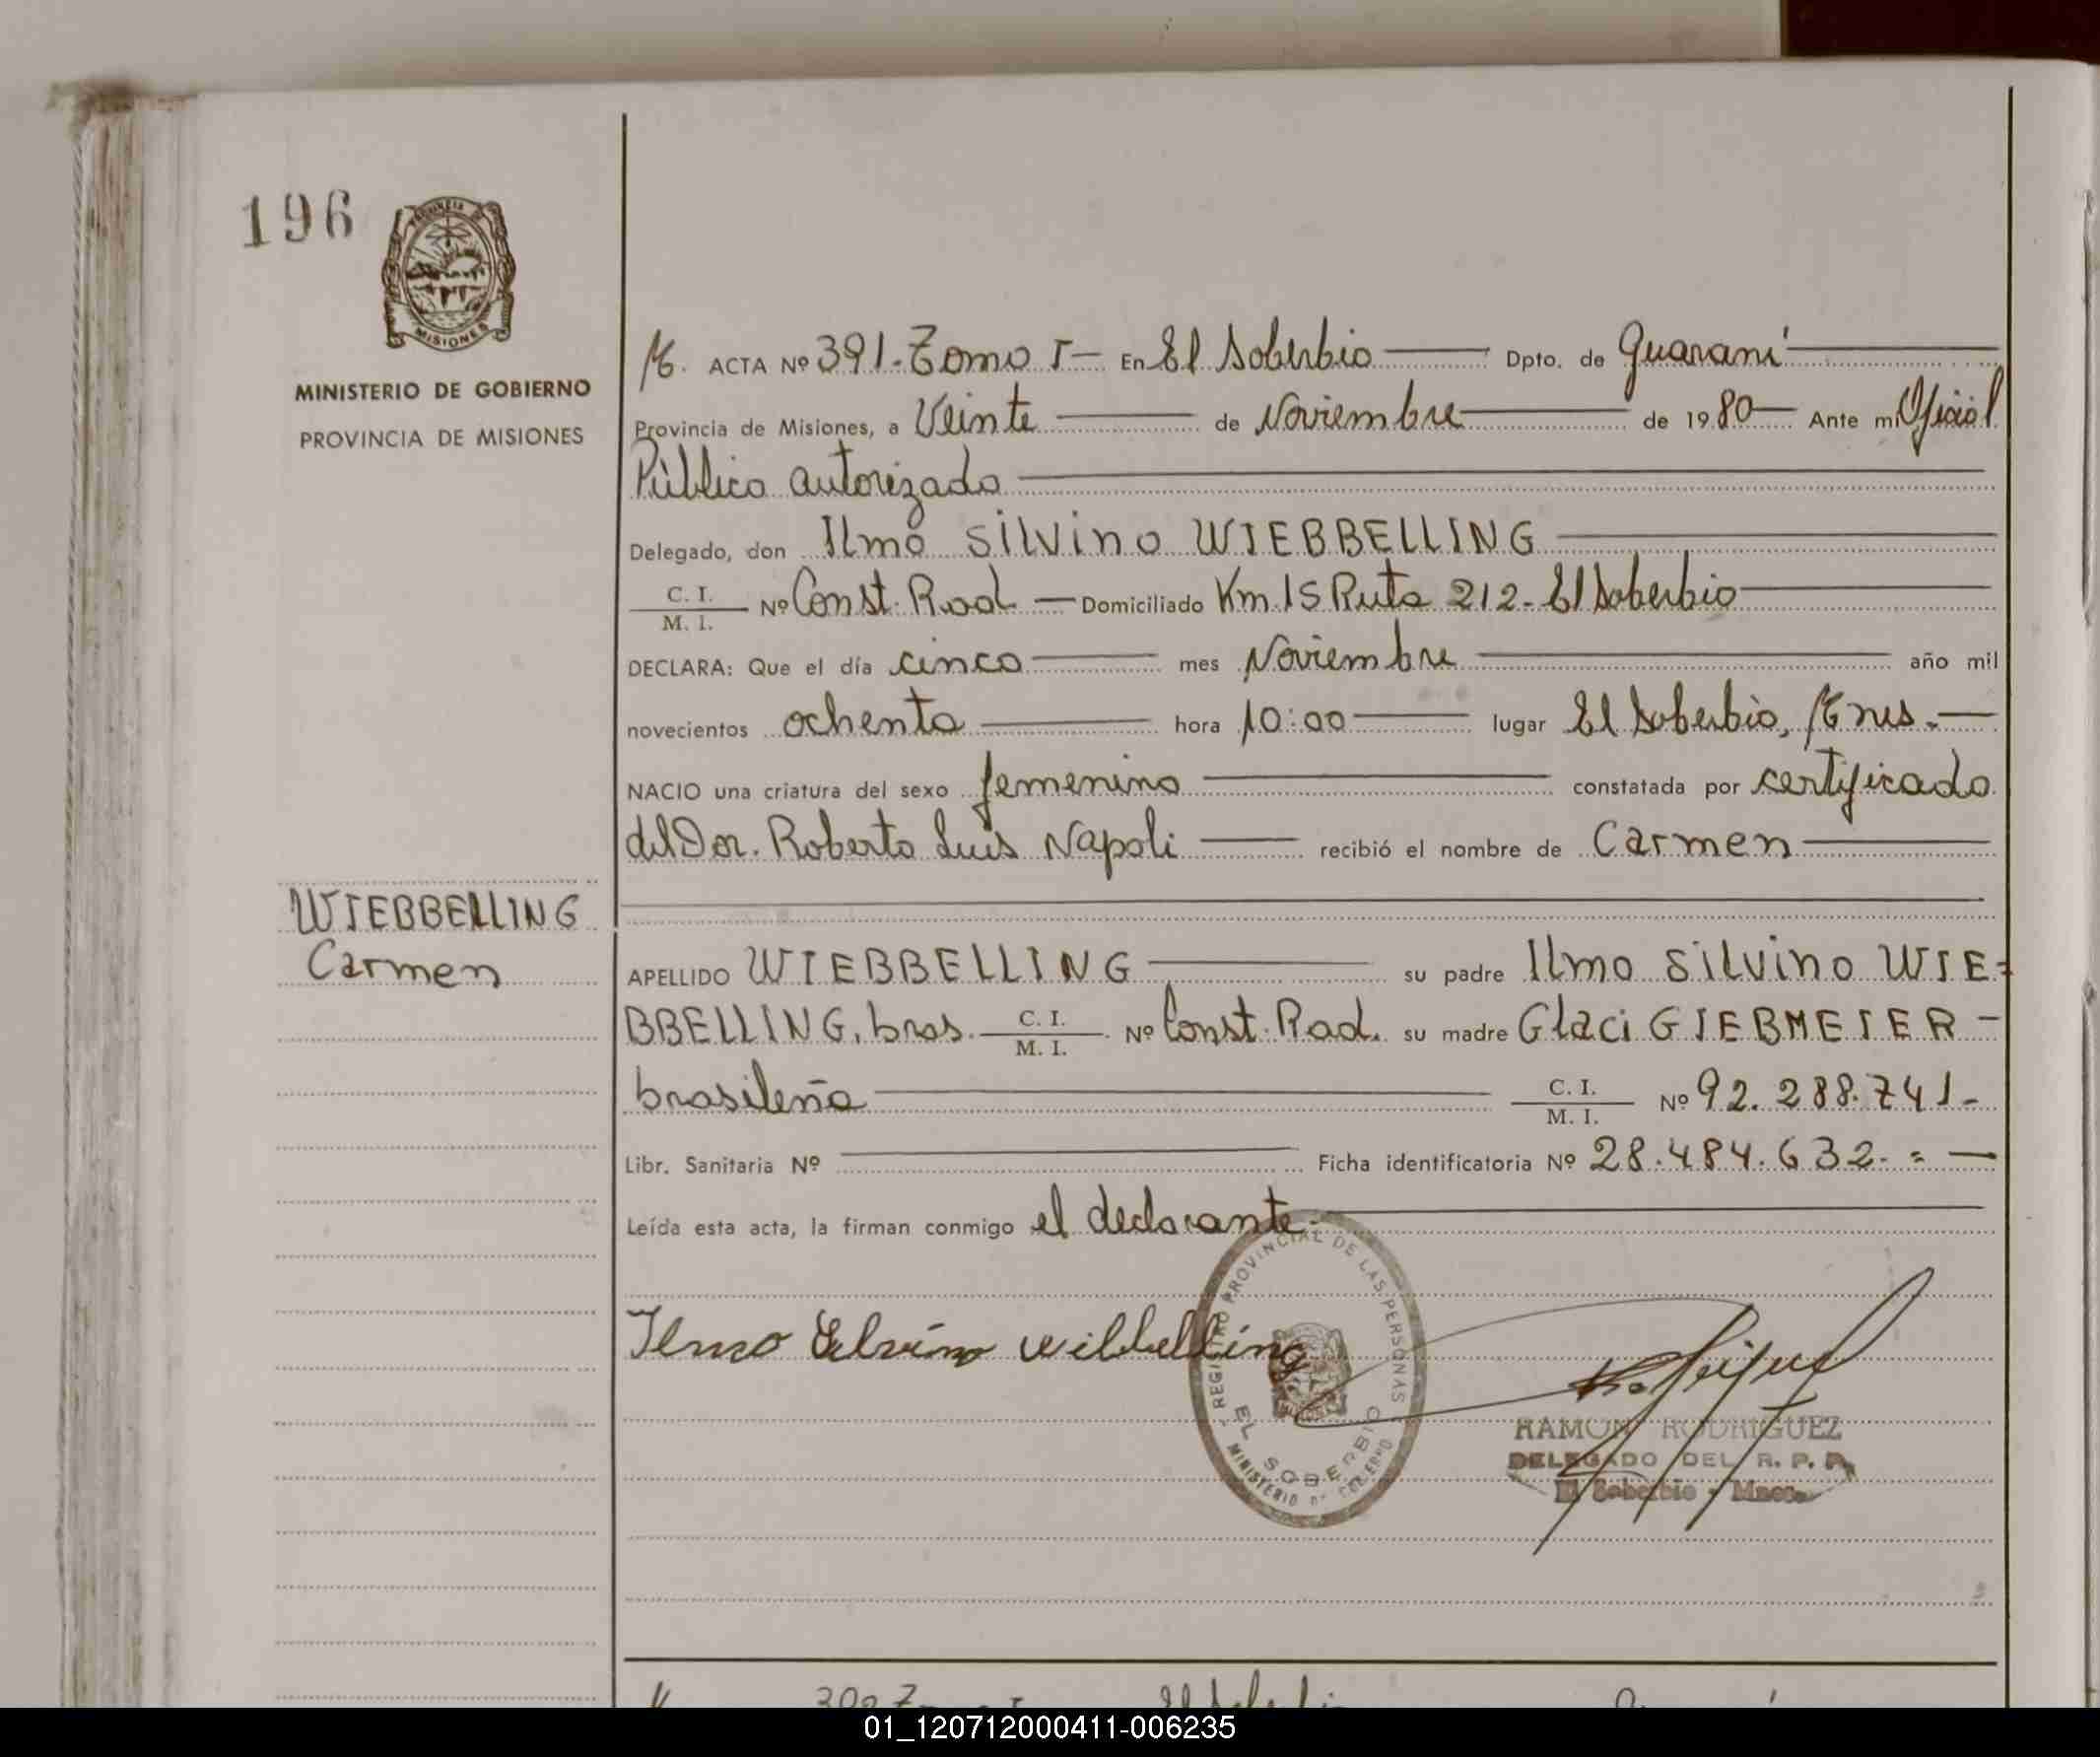 196
PROVINCIA DE
MISIONES
MINISTERIO DE GOBIERNO
PROVINCIA DE MISIONES
ACTA Nº 391. Tomo I - En El Soberbio Dpto. de Guaraní
Provincia de Misiones, a Veinte de Noviembre de 1980 Ante mi Oficial
Público autorizado
Delegado, don Ilmo Silvino WIEBBELLING
C. I.
M. I. Nº Const. Rad. Domiciliado Km 15 Ruta 212 - El Soberbio
DECLARA: Que el día cinco mes Noviembre año mil
novecientos ochenta hora 10:00 lugar El Soberbio, Mnes.
NACIO una criatura del sexo femenino constatada por certificado
del Dor. Roberto Luis Napoli recibió el nombre de Carmen
WIEBBELLING
Carmen
APELLIDO WIEBBELLING su padre Ilmo Silvino WIE-
BBELLING, bras. C. I. M. I. Nº Const. Rad. su madre Glaci GIEBMEIER -
brasileña C. I. M. I. Nº 92.288.741-
Libr. Sanitaria Nº Ficha identificatoria Nº 28.484.632. = —
Leída esta acta, la firman conmigo el declarante.
Ilmo Silvino Wiebbelling
REGISTRO PROVINCIAL DE LAS PERSONAS
EL SOBERBIO
MINISTERIO DE GOBIERNO
RAMON RODRIGUEZ
DELEGADO DEL R. P. P.
El Soberbio - Mnes.
01_120712000411-006235